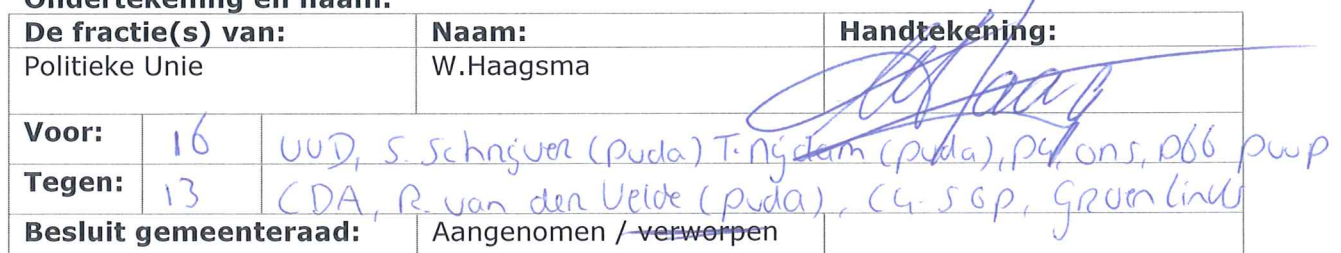 Ondertekening en naam:
De fractie(s) van: Naam: Handtekening:
Politieke Unie W.Haagsma
Voor: 16 VVD, S. Schrijver (pvda) T. Nijdam (pvda), PU, ons, D66 pwp
Tegen: 13 CDA, R. van der Velde (pvda), CU-SGP, Groenlinks
Besluit gemeenteraad: Aangenomen / verworpen